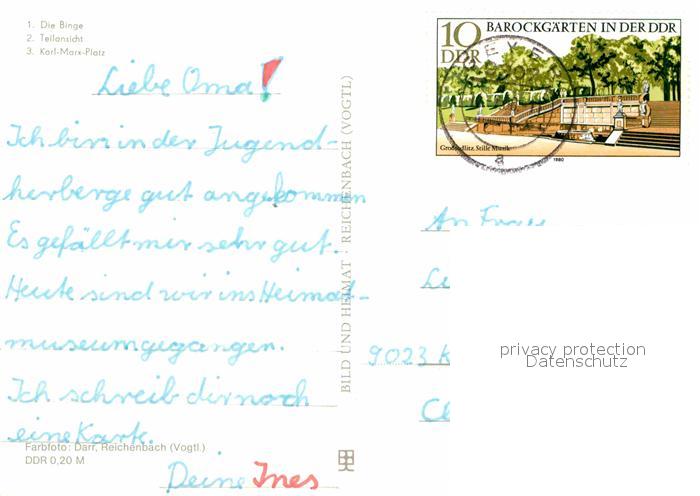 1. Die Binge
2. Teilansicht
3. Karl-Marx-Platz
Liebe Oma!
Ich bin in der Jugend-
herberge gut angekommen
Es gefällt mir sehr gut.
Heute sind wir ins Heimat-
museum gegangen.
Ich schreib dir noch
eine Karte.
Deine Ines
Farbfoto: Darr, Reichenbach (Vogtl.)
DDR 0,20 M
BILD UND HEIMAT · REICHENBACH (VOGTL)
10 BAROCKGÄRTEN IN DER DDR
DDR
Großsedlitz, Stille Musik
1980
a
An Frau
9023 K
privacy protection
Datenschutz